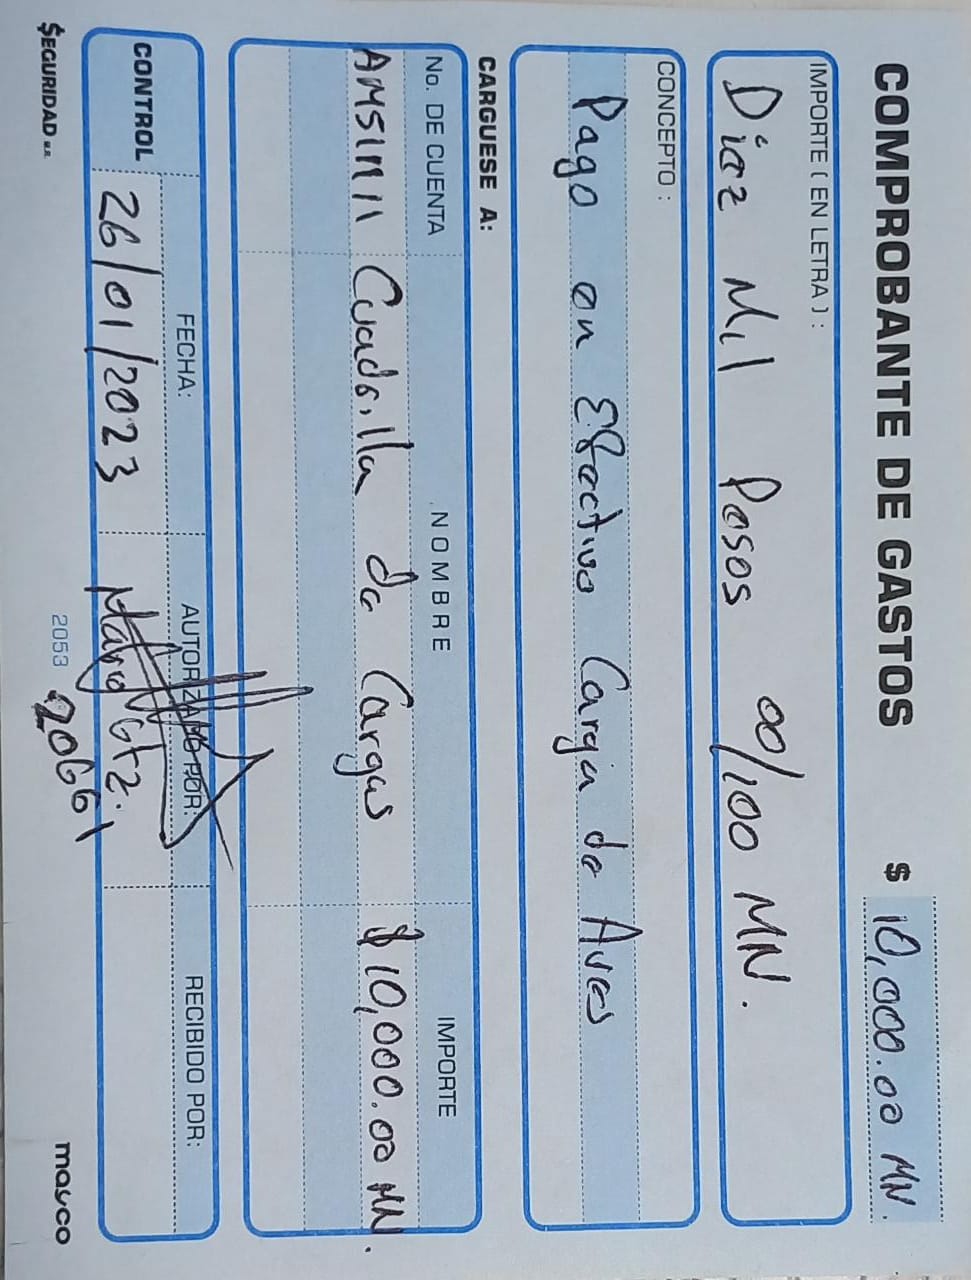 COMPROBANTE DE GASTOS $ 10,000.00 MN.
IMPORTE ( EN LETRA ) :
Diez Mil Pesos 00/100 MN.
CONCEPTO :
Pago en Efectivo Carga de Aves
CARGUESE A:
No. DE CUENTA NOMBRE IMPORTE
Cuadrilla de Cargas $10,000.00 MN.
CONTROL FECHA: AUTORIZADO POR: RECIBIDO POR:
26/01/2023 Mario Gtz.
20661
$EGURIDAD M.R. 2053 masco